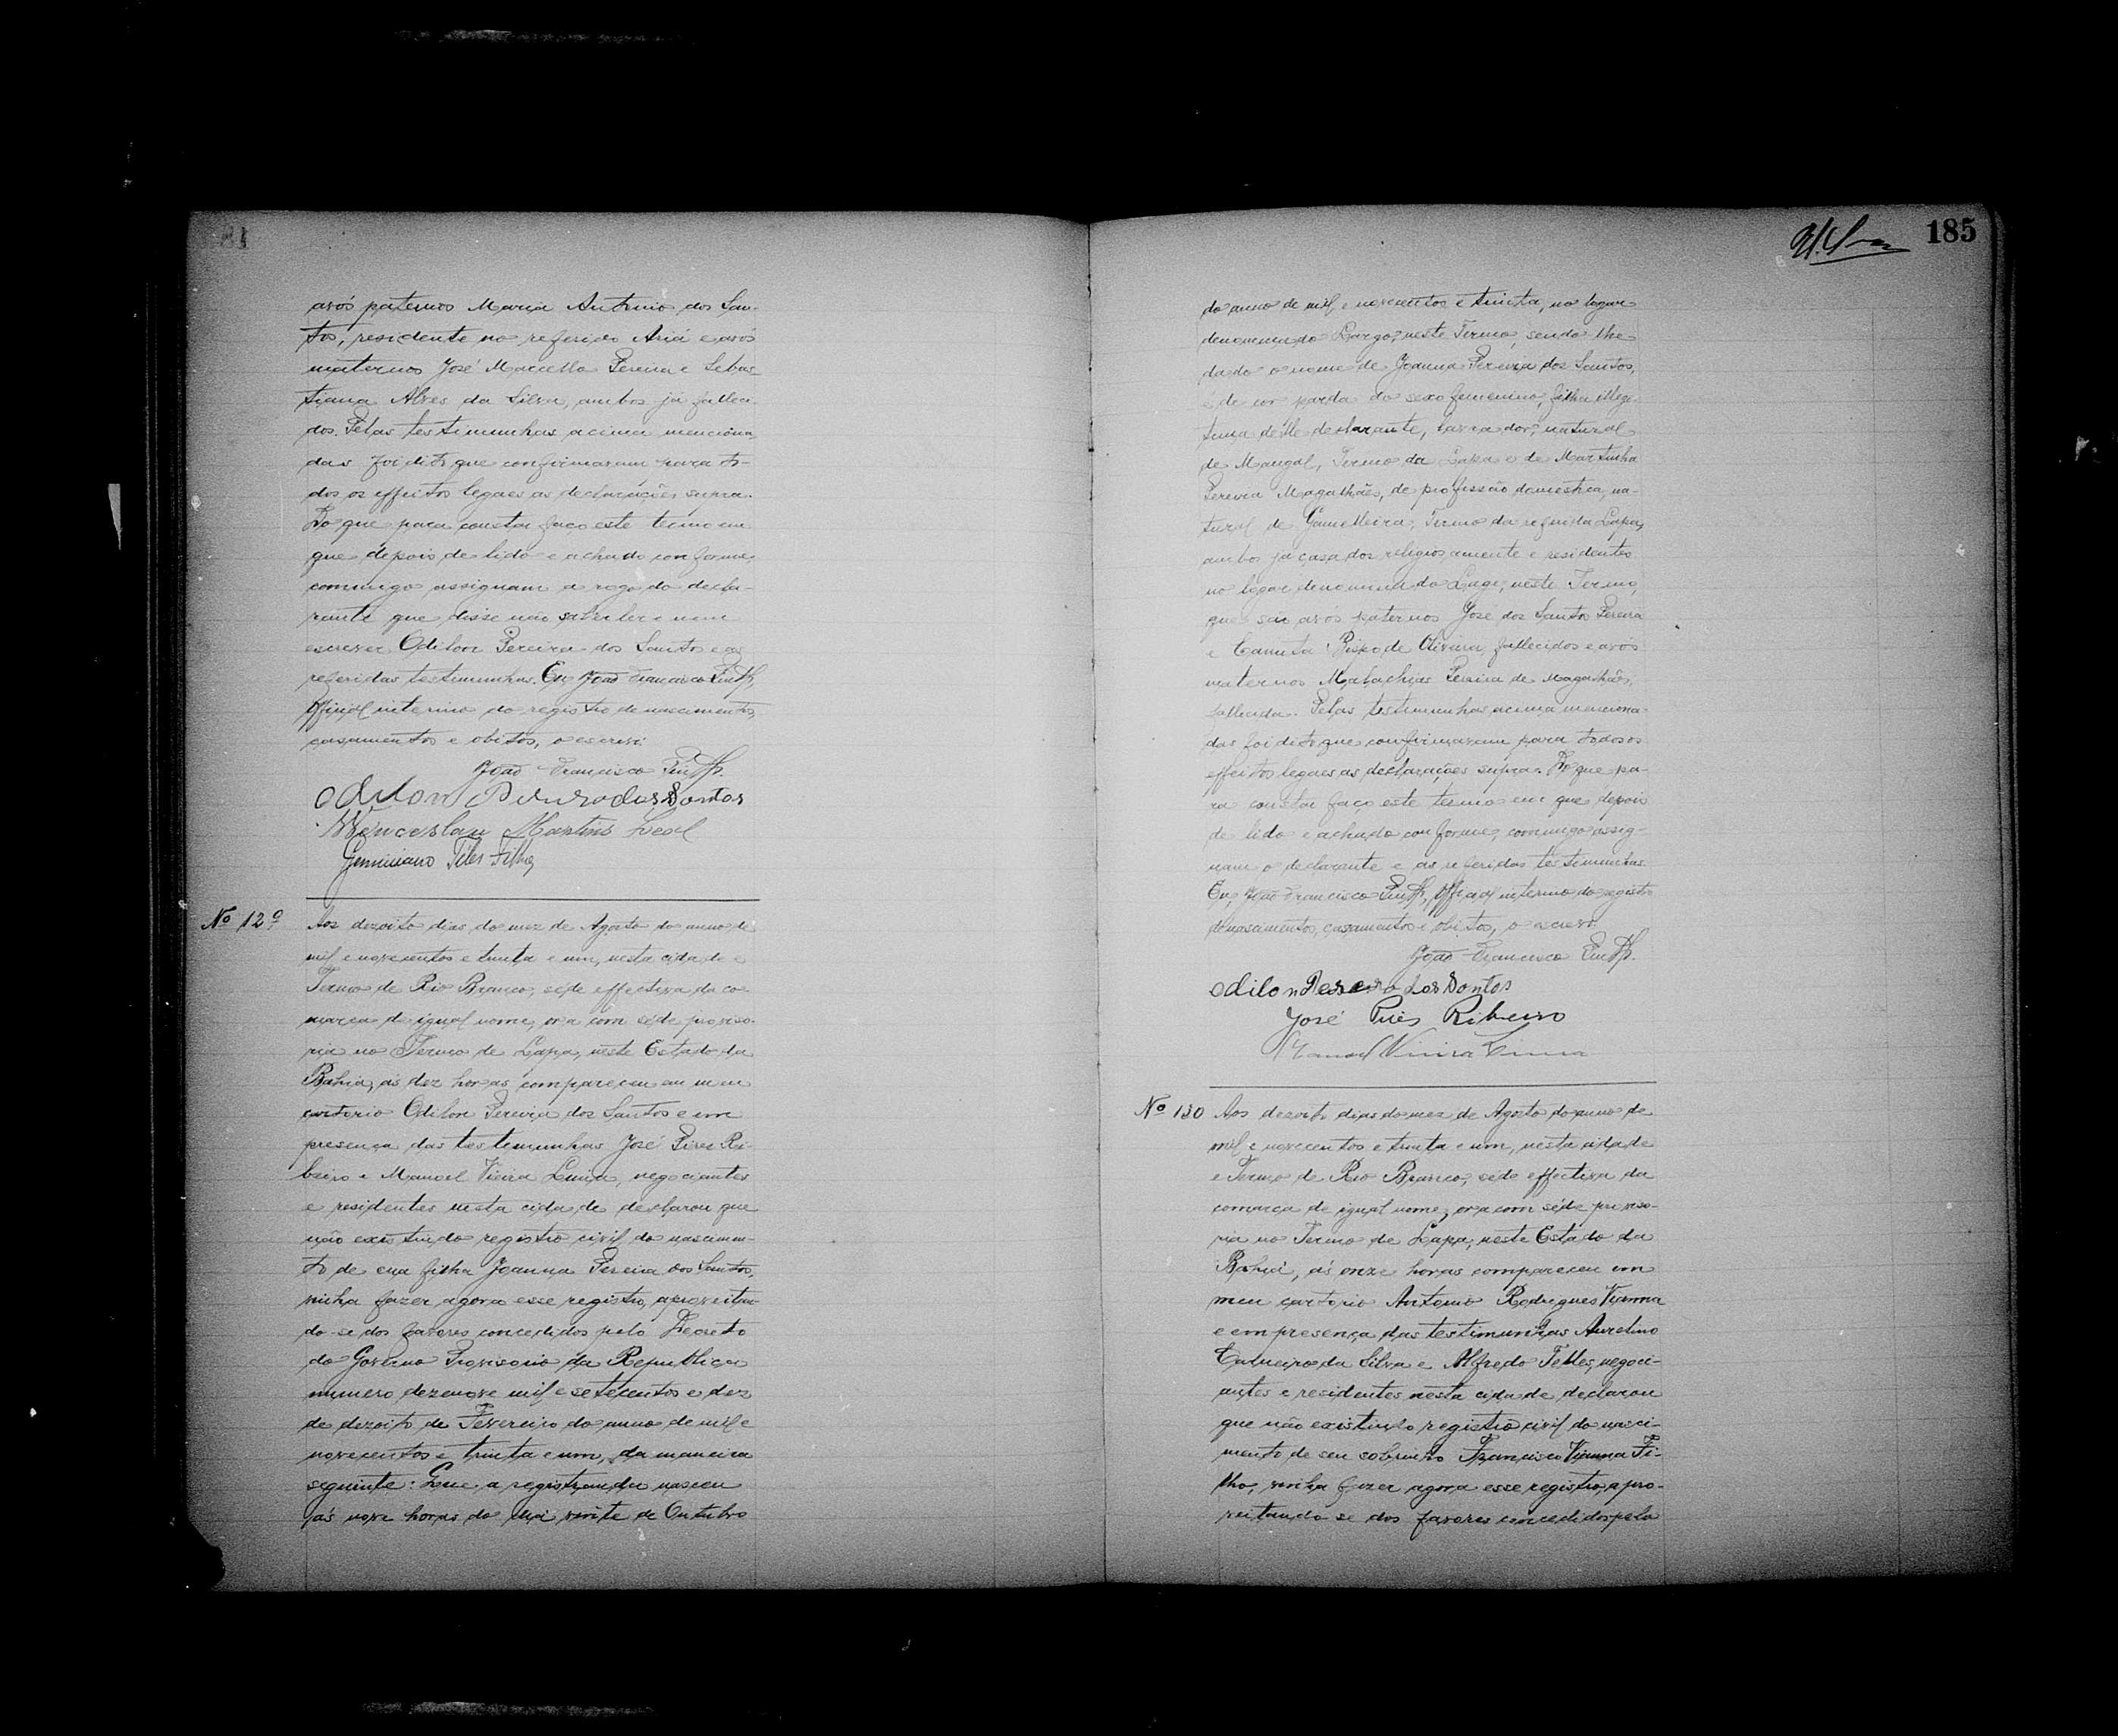 avós paternos Maria Antonio dos San-
tos, residente no referido Ariá e avós
maternos José Marcello Pereira e Sebas-
tiana Alves da Silva, ambos já falleci-
dos. Pelas testimunhas acima menciona-
das foi dito que confirmavam para to-
dos os effeitos legaes as declarações supra.
Do que para constar faço este termo em
que depois de lido e achado conforme,
commigo assignam a rogo do decla-
rante que disse não saber ler e nem
escrever Odilon Pereira dos Santos e as
referidas testimunhas. Eu, João Francisco
Official interino do registro de nascimentos,
casamentos e obitos, o escrevi.
João Francisco
Odilon Pereira dos Santos
Wenceslau Martins Leal
Geminiano Teles Filho
No 129
Aos dezoito dias do mez de Agosto do anno de
mil e novecentos e trinta e um, nesta cidade e
Termo de Rio Branco, séde effectiva da co-
marca de igual nome, ora com séde proviso-
ria no Termo de Lapa, neste Estado da
Bahia, ás dez horas, compareceu em meu
cartorio Odilon Pereira dos Santos e em
presença das testemunhas José Pires Ri-
beiro e Manoel Vieira Lima, negociantes
e residentes nesta cidade declarou que
não existindo registro civil do nascimen-
to de sua filha Joanna Pereira dos Santos,
vinha fazer agora esse registro, aproveitan-
do-se dos favores concedidos pelo Decreto
do Governo Provisorio da Republica
numero dezenove mil e setecentos e dez
de dezoito de Fevereiro do anno de mil e
novecentos e trinta e um, da maneira
seguinte: Que a registranda nasceu
ás nove horas do dia vinte de Outubro
185
do anno de mil e novecentos e trinta, no logar
denominado neste Termo, sendo-lhe
dado o nome de Joanna Pereira dos Santos,
é de cor parda do sexo femenino, filha illegi-
tima delle declarante, lavrador, natural
de Mangal, Termo da Lapa e de Martinha
Pereira Magalhães, de profissão domestica, na-
tural de Gamelleira, Termo da referida Lapa,
ambos já casados religiosamente e residentes
no logar denominado Lage, neste Termo,
que são avós paternos José dos Santos Pereira
e Bispo de Oliveira, fallecidos e avós
maternos Malachias Pereira de Magalhães,
fallecida. Pelas testimunhas acima menciona-
das foi dito que confirmavam para todos os
effeitos legaes as declarações supra. Do que pa-
ra constar faço este termo em que depois
de lido e achado conforme, commigo assig-
nam o declarante e as referidas testimunhas.
Eu, João Francisco Official interino do registro
de nascimentos, casamentos e obitos, o escrevi.
João Francisco
Odilon Pereira dos Santos
José Pires Ribeiro
Manoel Vieira Lima
No 130
Aos dezoito dias do mez de Agosto do anno de
mil e novecentos e trinta e um, nesta cidade
e Termo de Rio Branco, séde effectiva da
comarca de igual nome, ora com séde proviso-
ria no Termo de Lapa, neste Estado da
Bahia, ás onze horas compareceu em
meu cartorio Antonio Rodrigues Vianna
e em presença das testimunhas Aurelino
da Silva e Alfredo Telles, negoci-
antes e residentes nesta cidade declarou
que não existindo registro civil do nasci-
mento de seu sobrinho Francisco Vianna Fi-
lho, vinha fazer agora esse registro, apro-
veitando-se dos favores concedidos pelo